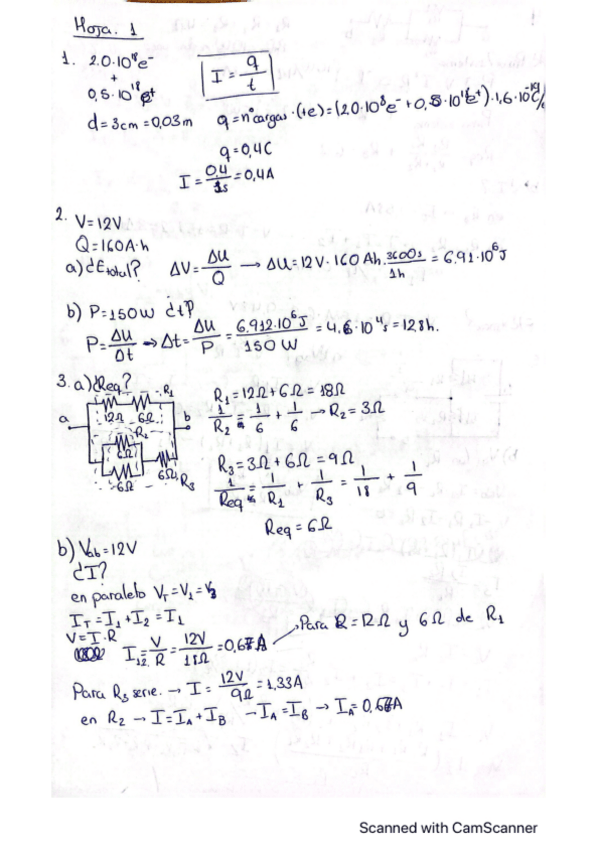 Hoja. 1
1. 2.0·10¹⁸e⁻
+
0,5·10¹⁸e⁺
d=3cm=0,03m
I = q/t
q=nºcargas·(+e)=(2.0·10⁸e⁻+0,5·10¹⁸e⁺)·1,6·10⁻¹⁹C/
q=0,4C
I=0,4/1s=0,4A
2. V=12V
Q=160A·h
a) ¿Etotal? ΔV=ΔU/Q → ΔU=12V·160Ah·3600s/1h=6.91·10⁶J
b) P=150W ¿t?
P=ΔU/Δt → Δt=ΔU/P=6,912·10⁶J/150W=4.6·10⁴s=12,8h.
3. a) ¿Req?
a b R₁ 12Ω 6Ω R₂ 6Ω 6Ω 6Ω R₃
R₁=12Ω+6Ω=18Ω
1/R₂=1/6+1/6 → R₂=3Ω
R₃=3Ω+6Ω=9Ω
1/Req=1/R₁+1/R₃=1/18+1/9
Req=6Ω
b) Vab=12V
¿I?
en paralelo V_T=V₁=V₃
I_T=I₁+I₂=I₁
V=I·R
I₁₂=V/R=12V/18Ω=0,67A → Para R=12Ω y 6Ω de R₁
Para R₃ serie. → I=12V/9Ω=1,33A
en R₂ → I=I_A+I_B → I_A=I_B → I_A=0,67A
Scanned with CamScanner